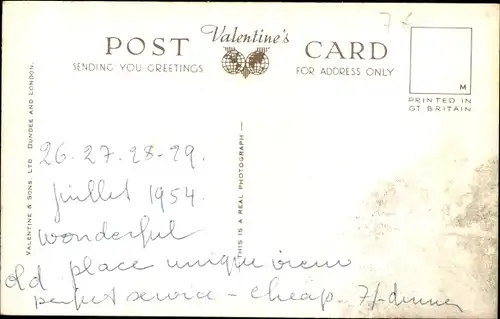 7 €
POST Valentine's CARD
SENDING YOU GREETINGS FOR ADDRESS ONLY
M
PRINTED IN
GT BRITAIN
VALENTINE & SONS LTD. DUNDEE AND LONDON.
THIS IS A REAL PHOTOGRAPH
26. 27. 28 - 29.
juillet 1954.
wonderful
old place unique view
perfect service - cheap. 7/- dinner